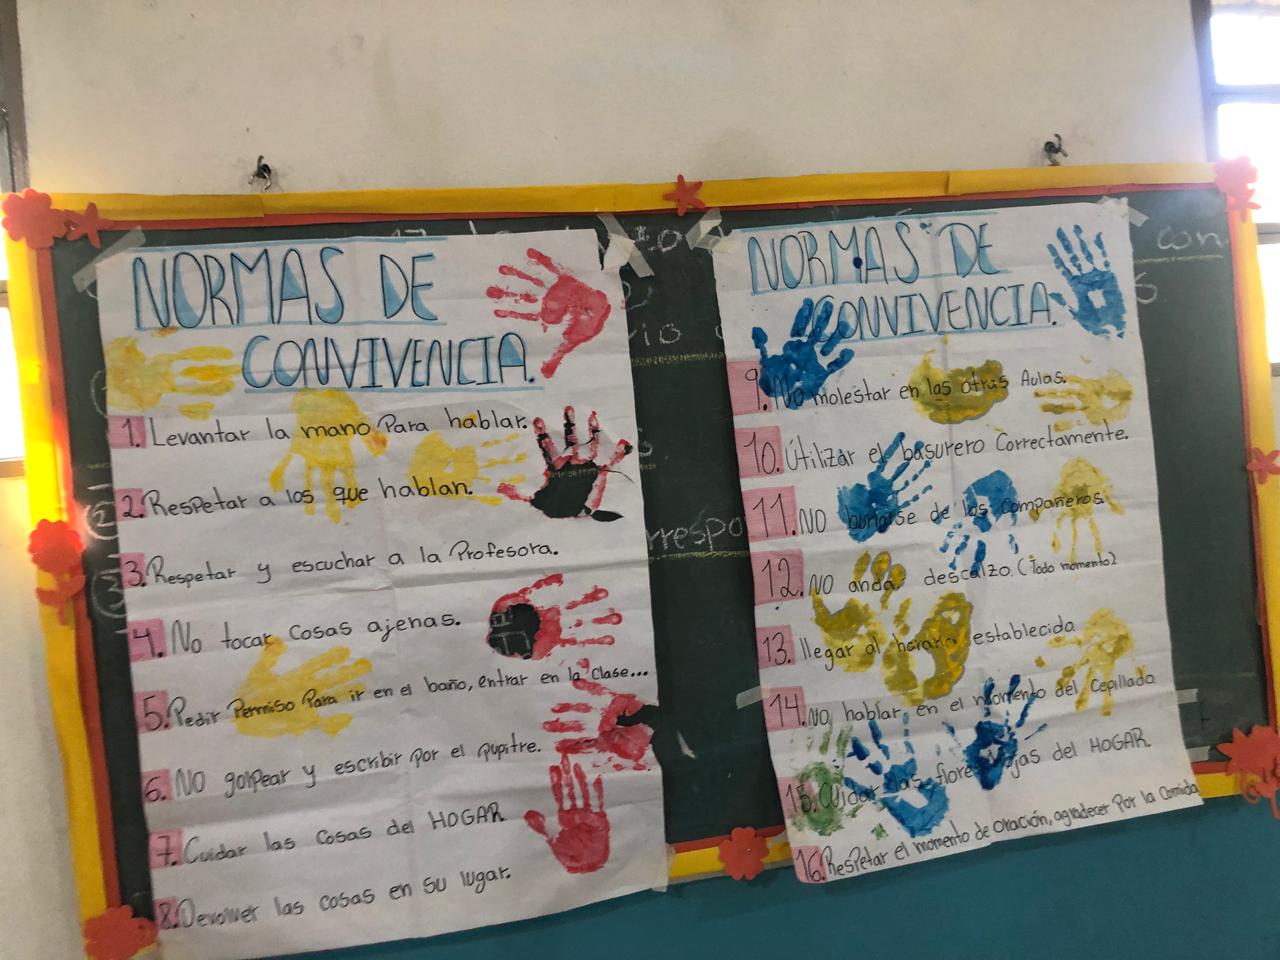 NORMAS DE
CONVIVENCIA.
1. Levantar la mano Para hablar.
2. Respetar a los que hablan.
3. Respetar y escuchar a la Profesora.
4. No tocar cosas ajenas.
5. Pedir Permiso Para ir en el baño, entrar en la clase...
6. NO golpear y escribir por el pupitre.
7. Cuidar las cosas del HOGAR.
8. Devolver las cosas en su lugar.
NORMAS DE
CONVIVENCIA.
9. No molestar en las otras Aulas.
10. Útilizar el basurero Correctamente.
11. NO burlarse de los Compañeros.
12. NO andar descalzo. (Todo momento)
13. llegar al horario establecido
14. NO hablar en el momento del Cepillado
15. Cuidar las flores, hojas del HOGAR.
16. Respetar el momento de oración, agradecer Por la Comida
con